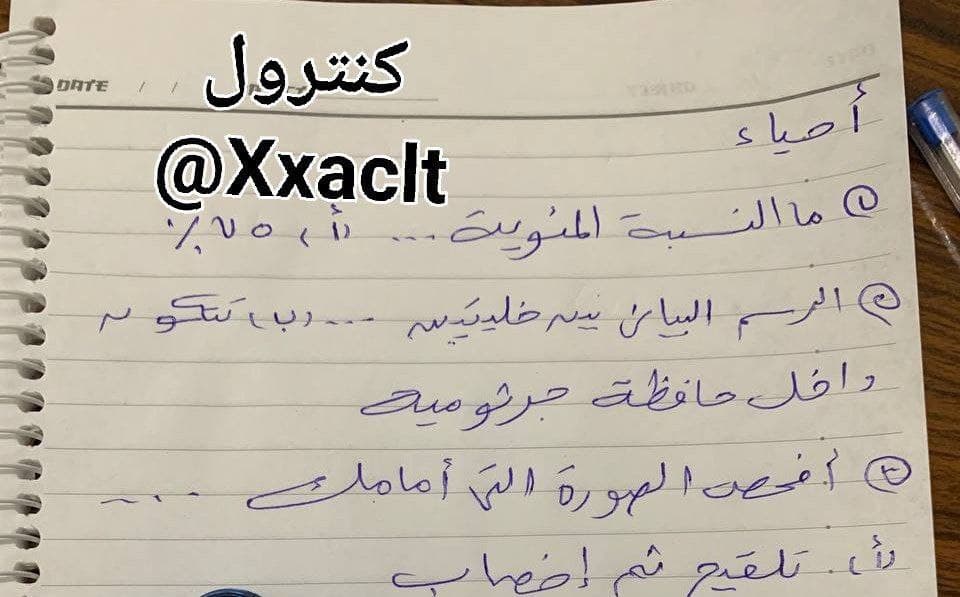 كنترول
DATE / /
@Xxaclt
أحياء
① ما النسبة المئوية ... (أ) ٧٥٪
② الرسم البياني يبين خليتين ... (ب) تتكون
داخل حافظة جرثومية
③ أفحص الصورة التي أمامك ...
(أ). تلقيح ثم إخصاب